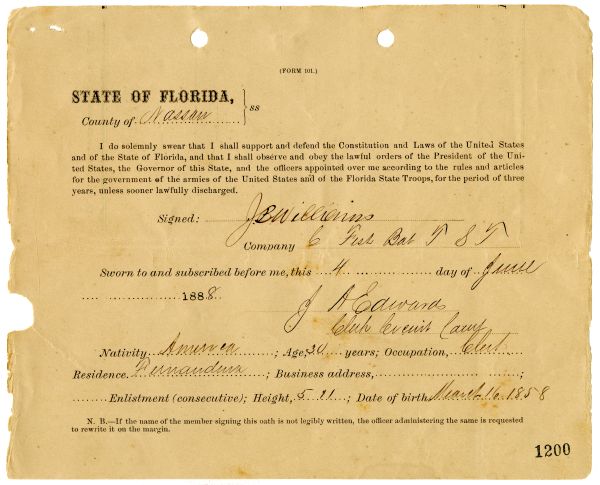 (FORM 101.)
STATE OF FLORIDA,
ss
County of Nassau
I do solemnly swear that I shall support and defend the Constitution and Laws of the United States
and of the State of Florida, and that I shall observe and obey the lawful orders of the President of the Uni-
ted States, the Governor of this State, and the officers appointed over me according to the rules and articles
for the government of the armies of the United States and of the Florida State Troops, for the period of three
years, unless sooner lawfully discharged.
Signed: J Williams
Company C First Bat F S T
Sworn to and subscribed before me, this 4 day of June
1888.
J A Edwards
Clerk Circuit Court
Nativity America; Age, 30 years; Occupation, Clerk
Residence Fernandina; Business address, ;
Enlistment (consecutive); Height, 5.11; Date of birth March 16, 1858
N. B.—If the name of the member signing this oath is not legibly written, the officer administering the same is requested
to rewrite it on the margin.
1200